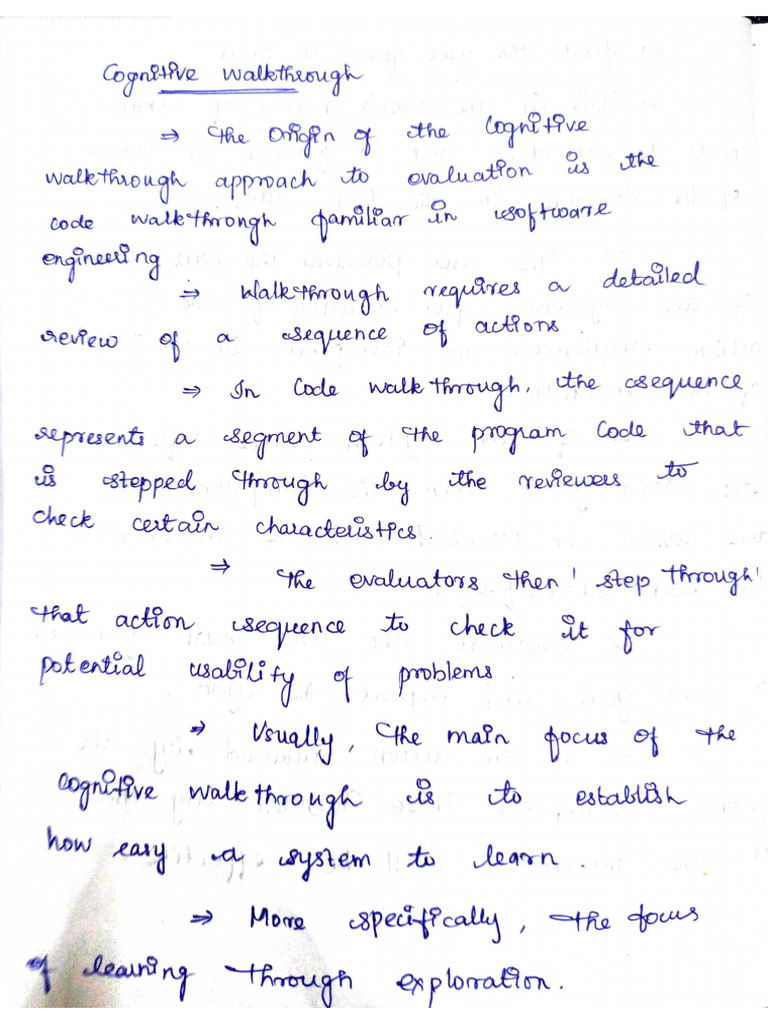 Cognitive Walkthrough
⇒ The Origin of the Cognitive
walkthrough approach to evaluation is the
code walkthrough familiar in software
engineering
⇒ Walkthrough requires a detailed
review of a sequence of actions.
⇒ In Code walkthrough, the sequence
represents a segment of the program Code that
is stepped through by the reviewers to
check certain characteristics.
⇒ The evaluators then 'step through'
that action sequence to check it for
potential usability of problems.
⇒ Usually, the main focus of the
cognitive walkthrough is to establish
how easy a system to learn.
⇒ More specifically, the focus
of learning through exploration.